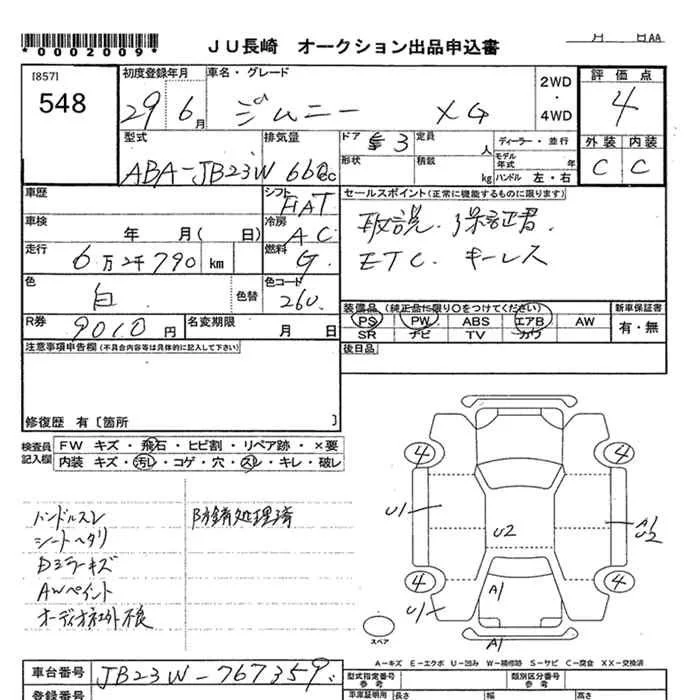 *0002009*
JU長崎 オークション出品申込書
月 日AA
[857]
548
初度登録年月
29 6月
車名・グレード
ジムニー XG
2WD
・
4WD
評価点
4
外装 内装
C C
型式
ABA-JB23W
排気量
660cc
ドア 3
形状
定員 人
積載 kg
ディーラー・並行
モデル年式 年
ハンドル 左・右
車歴
シフト
FAT
セールスポイント(正常に機能するものに限ります)
取説. 保証書.
ETC. キーレス
車検 年 月( 日)
冷房
AC
走行 6万2千790 km
燃料
G
色 白 色替
色コード
260
装備品(純正品に限り○をつけてください)
PS PW ABS エアB AW
SR ナビ TV カワ
新車保証書
有・無
R券 9010円
名変期限 月 日
後日品
注意事項申告欄(不具合内容等は具体的に記入して下さい)
修復歴 有〔箇所 〕
検査員記入欄
FW キズ・飛石・ヒビ割・リペア跡・×要
内装 キズ・汚レ・コゲ・穴・スレ・キレ・破レ
ハンドルスレ
シートヘタリ
Dミラーキズ
AWペイント
オーディオ社外不良
防錆処理済
4 4
U1
U2
A1
U2
4 4
U1
A1
A1
スペア
A-キズ E-エクボ U-凹み W-補修跡 S-サビ C-腐食 XX-交換済
車台番号 JB23W-767359
登録番号
型式指定番号
参考
類別区分番号
参考
車庫証明用 長さ 幅 高さ